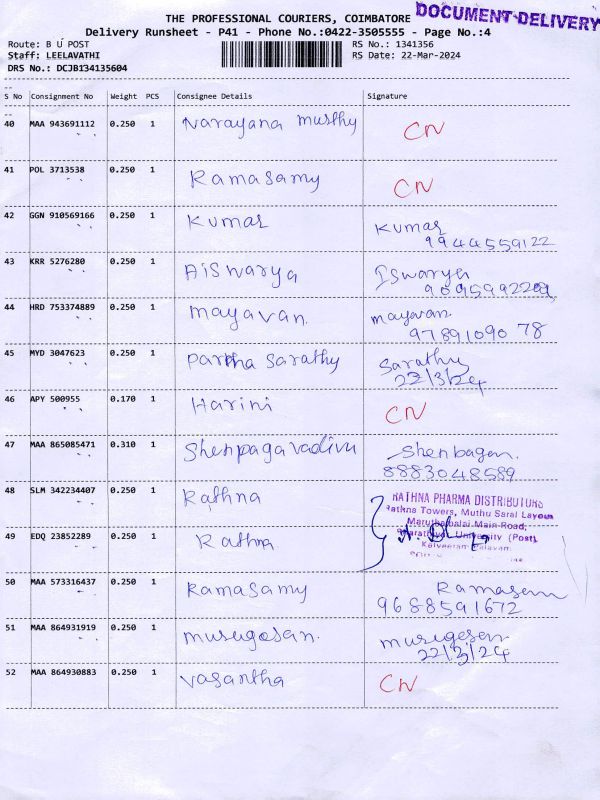 THE PROFESSIONAL COURIERS, COIMBATORE
DOCUMENT DELIVERY
Delivery Runsheet - P41 - Phone No.:0422-3505555 - Page No.:4
Route: B U POST
RS No.: 1341356
Staff: LEELAVATHI
RS Date: 22-Mar-2024
DRS No.: DCJB134135604
S No Consignment No Weight PCS Consignee Details Signature
40 MAA 943691112 0.250 1 Narayana Murthy CN
41 POL 3713538 0.250 1 Ramasamy CN
42 GGN 910569166 0.250 1 Kumar Kumar
9944559122
43 KRR 5276280 0.250 1 Aiswarya Iswarya
44 HRD 753374889 0.250 1 mayavan. mayavan
9789109078
45 MYD 3047623 0.250 1 Partha Sarathy Sarathy
22/3/24
46 APY 500955 0.170 1 Harini CN
47 MAA 865085471 0.310 1 Shenpagavadivu Shenbagan
8883048589
48 SLM 342234407 0.250 1 Rathna RATHNA PHARMA DISTRIBUTORS
Rathna Towers, Muthu Saral Layout
Maruthamalai Main Road,
49 EDQ 23852289 0.250 1 Rathna Bharathiyar University (Post),
50 MAA 573316437 0.250 1 Ramasamy Ramasam
9688591672
51 MAA 864931919 0.250 1 murugesan. murugesan
22/3/24
52 MAA 864930883 0.250 1 Vasantha CN